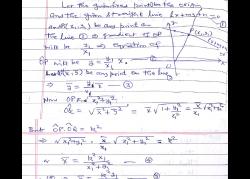 Let the guaranteed point be the origin
and the given straight line lx+my+n=0
Let P(x₁,y₁) be any point on
the line ① ⇒ gradient of OP
will be y₁/x₁ ⇒ Equation of
OP will be y = y₁/x₁ x, — ②
Let Q(x̄,ȳ) be any point on the line
⇒ ȳ = y₁/x₁ x̄ — ③
Now OP = √x₁²+y₁²
OQ = √x̄²+ȳ² = x̄ √1+y₁²/x₁² = x̄/x₁ √x₁²+y₁²
But OP.OQ = k²
⇒ √x₁²+y₁² . x̄/x₁ √x₁²+y₁² = k²
⇒ x̄ = k²x₁/x₁²+y₁² — ④